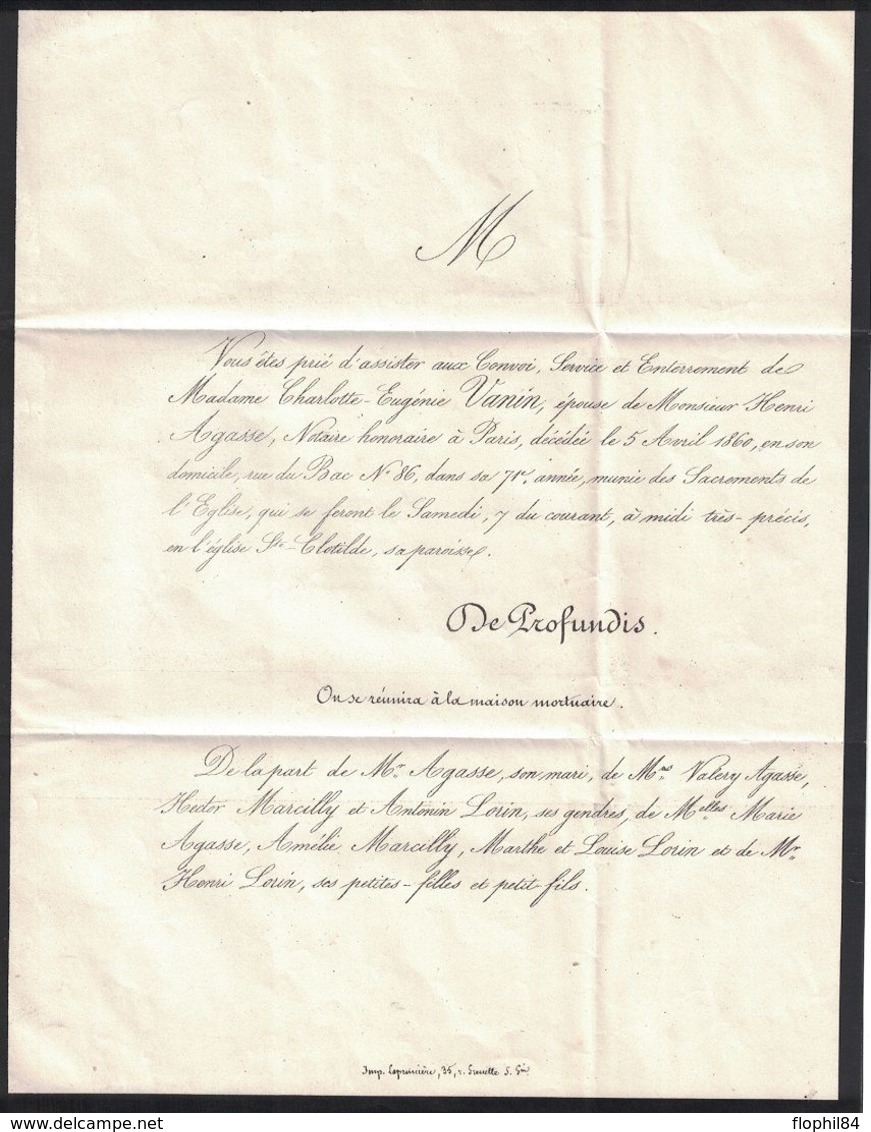 M
Vous êtes prié d'assister aux Convoi, Service et Enterrement de
Madame Charlotte-Eugénie Vanin, épouse de Monsieur Henri
Agasse, Notaire honoraire à Paris, décédée le 5 Avril 1860, en son
domicile, rue du Bac No 86, dans sa 71e, année, munie des Sacrements de
l'Eglise, qui se feront le Samedi, 7 du courant, à midi très-précis,
en l'église Ste-Clotilde, sa paroisse.
De Profundis.
On se réunira à la maison mortuaire.
De la part de Mr Agasse, son mari, de Mrs Valéry Agasse,
Hector Marcilly et Antonin Lorin, ses gendres, de Melles Marie
Agasse, Amélie Marcilly, Marthe et Louise Lorin et de Mr
Henri Lorin, ses petites-filles et petit-fils.
Imp. 35, r. Grenelle S. Gin
DELCAMPE.NET
flophil84